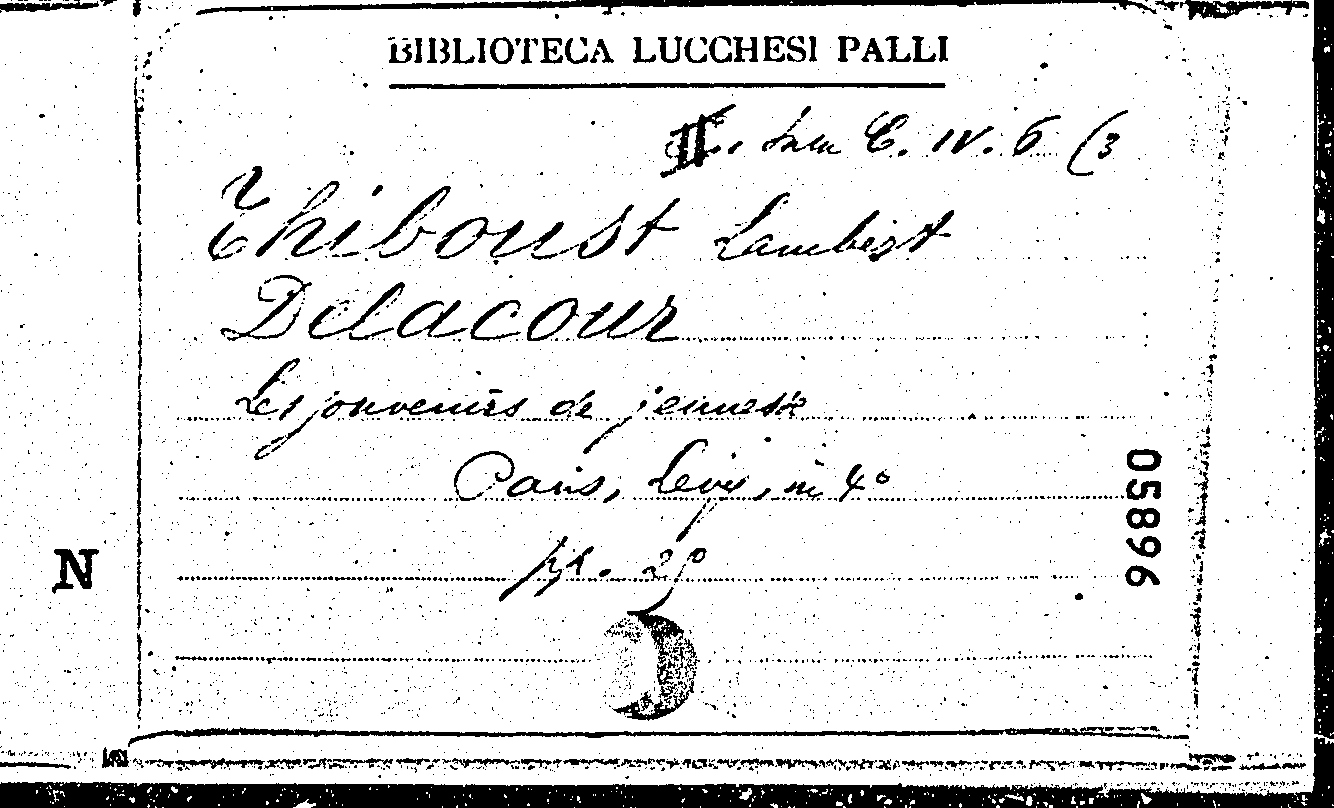 BIBLIOTECA LUCCHESI PALLI
II. Sala C. IV. 6 (3
Thiboust Lambert
Delacour
Les souvenirs de jeunesse
Paris, Levy, in 4°
pp. 29
05896
N